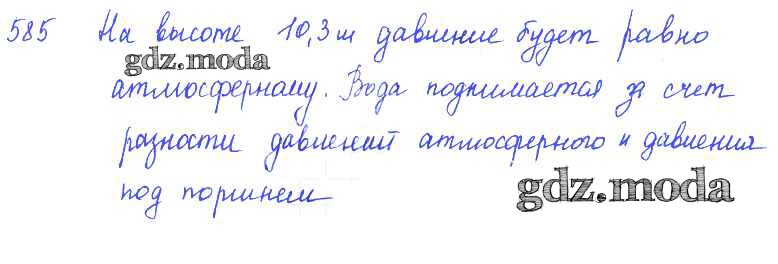 585 На высоте 10,3 м давление будет равно
gdz.moda
атмосферному. Вода поднимается за счет
разности давлений атмосферного и давления
под поршнем
gdz.moda